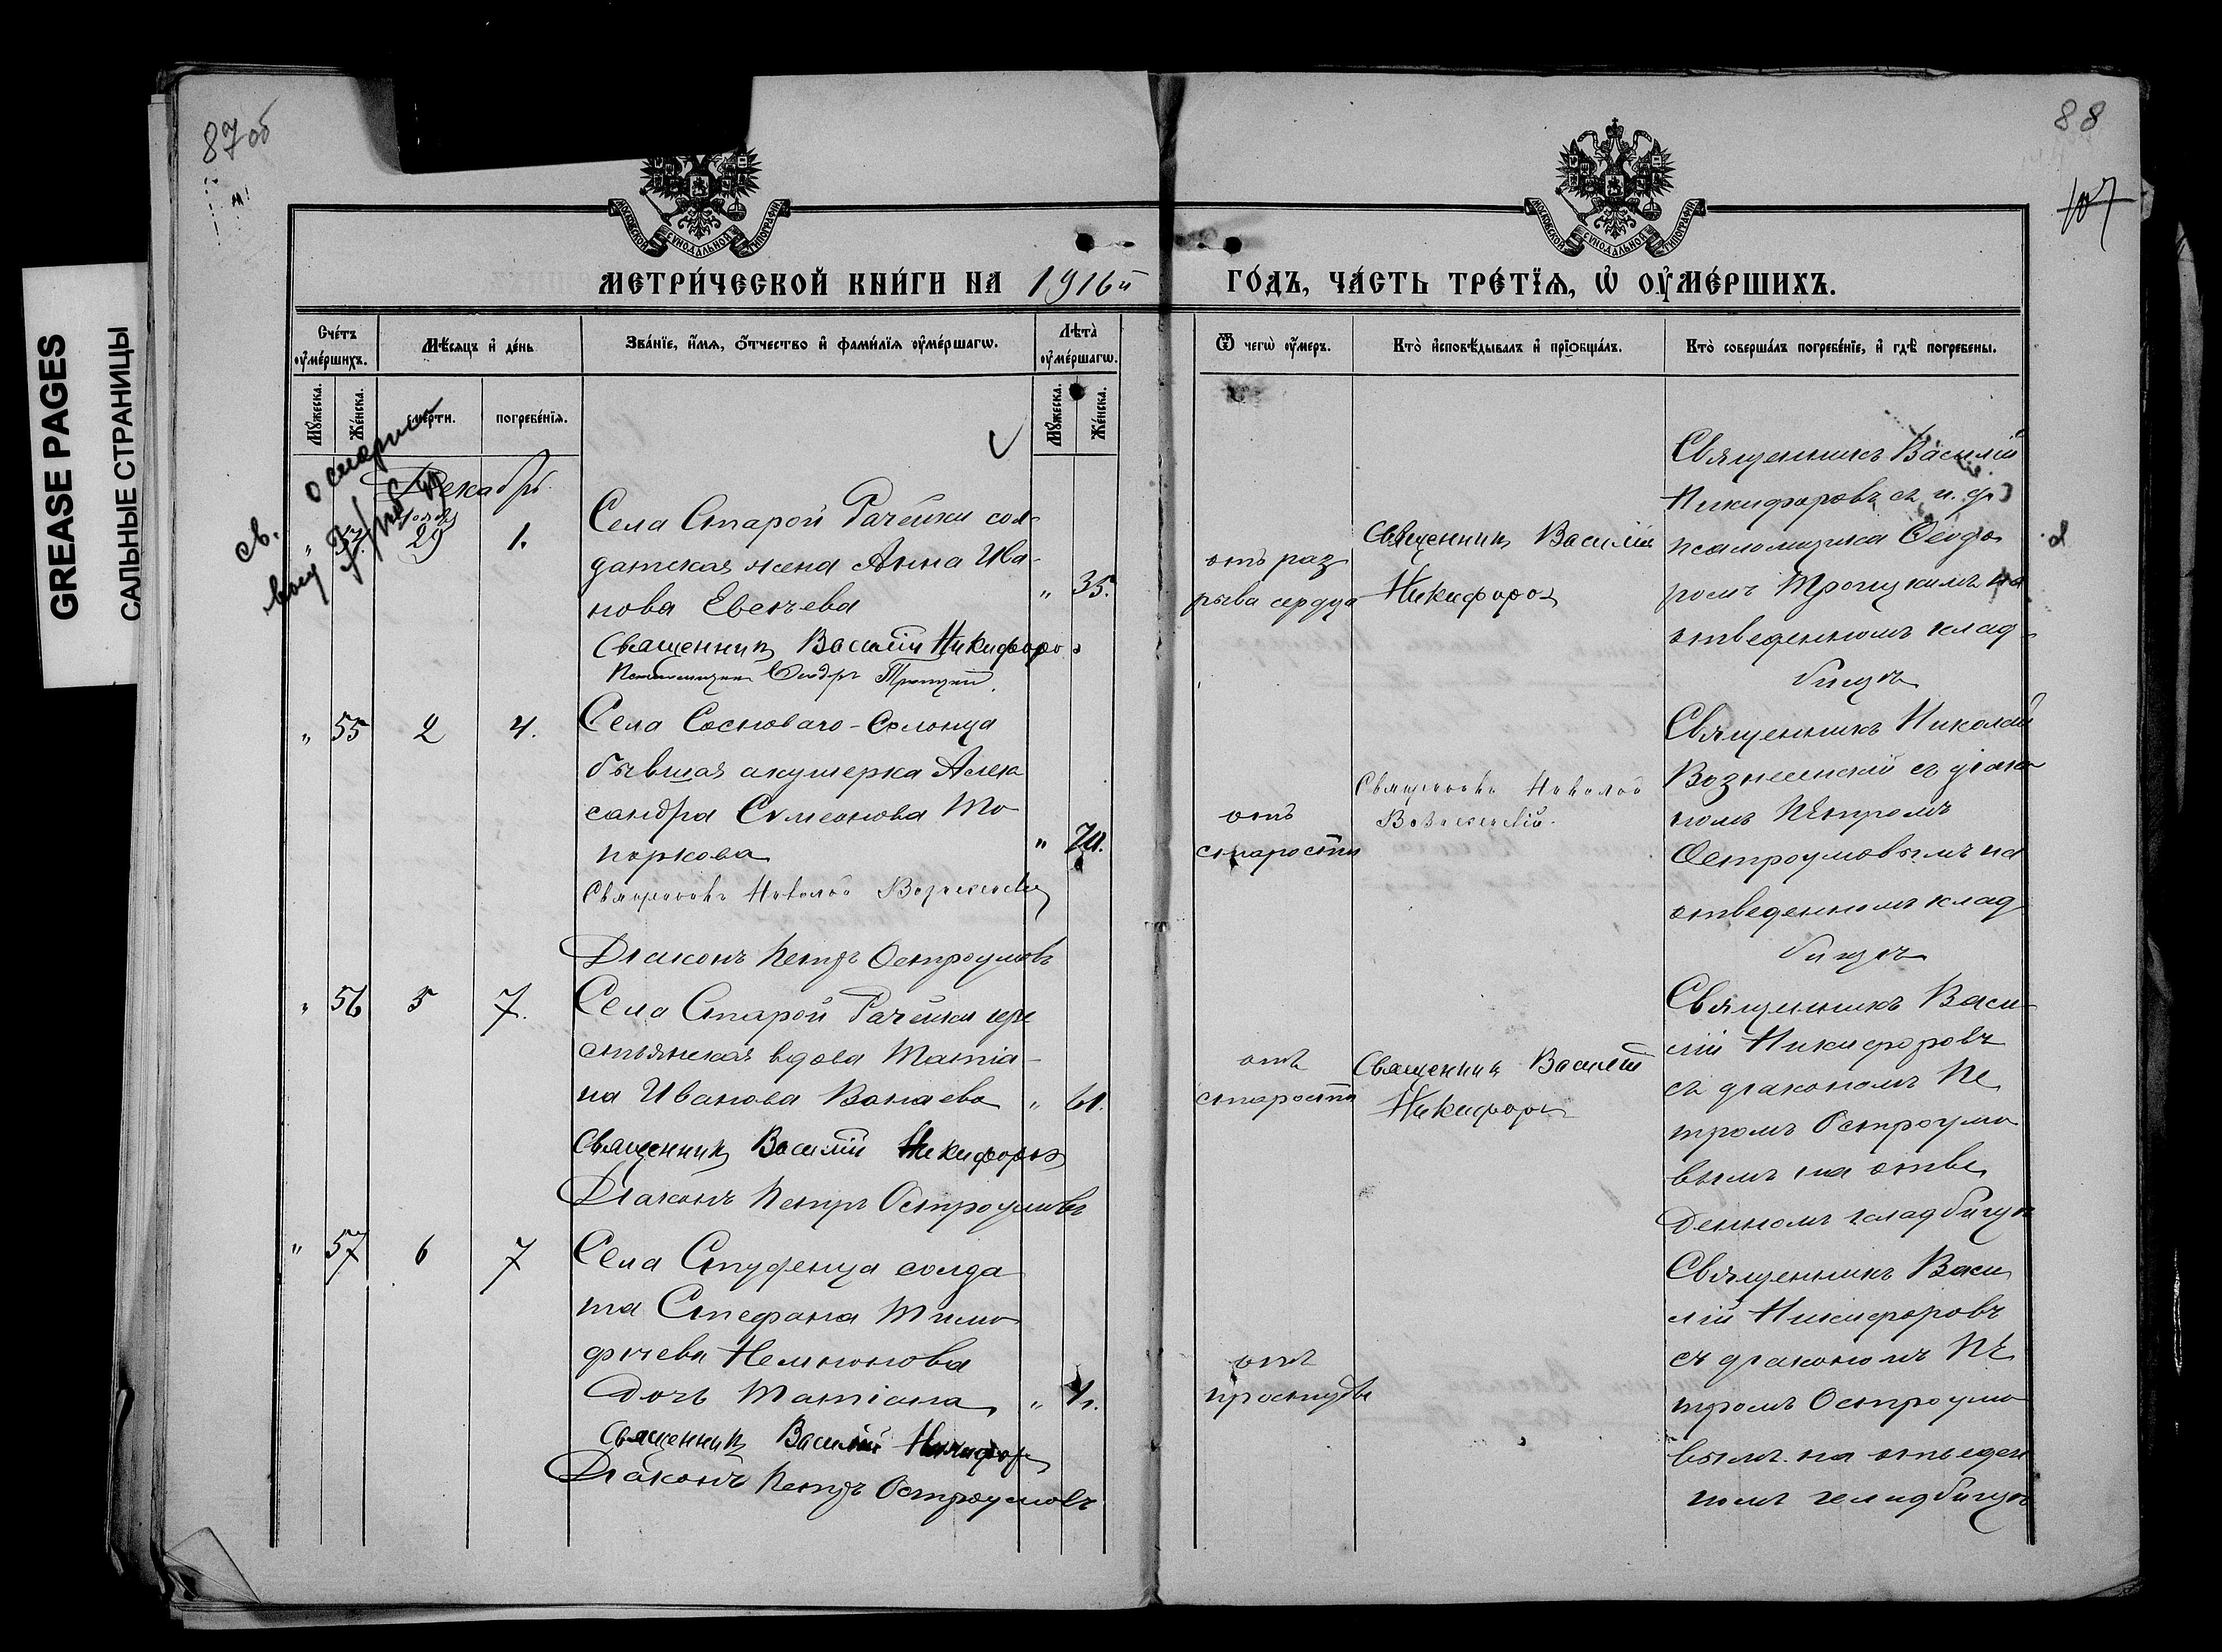 87об
88
107
GREASE PAGES
САЛЬНЫЕ СТРАНИЦЫ
МОСКОВСКОЙ СУНОДАЛЬНОЙ ТИПОГРАФІИ
МОСКОВСКОЙ СУНОДАЛЬНОЙ ТИПОГРАФІИ
МЕТРИ́ЧЕСКОЙ КНИ́ГИ НА 1916й ГО́ДЪ, ЧА́СТЬ ТРЕ́ТЇѦ, Ѡ҆ ОУ҆МЕ́РШИХЪ.
Сче́тъ оу҆ме́ршихъ.
Мѣ́сяцъ и҆ де́нь
Зва́нїе, и҆́мѧ, ѻ҆́тчество и҆ фами́лїѧ оу҆ме́ршагѡ.
Лѣта̀ оу҆ме́ршагѡ.
Ѿ чегѡ̀ оу҆́меръ.
Кто̀ и҆сповѣ́дывалъ и҆ прїѡбща́лъ.
Кто̀ соверша́лъ погребе́нїе, и҆ гдѣ̀ погребены.
Мꙋ́жеска.
Же́нска.
сме́рти.
погребе́нїѧ.
Мꙋ́жеска.
Же́нска.
св.
Декабрь
29
1.
Села Старой Рачейки сол-
датская жена Анна Ива-
нова Евенчева
" 35.
Священникъ Василій Никифоровъ
Псаломщикъ Ѳеодоръ Троицкій
отъ раз
рыва сердца
Священникъ Василій
Никифоровъ
Священникъ Василій
Никифоровъ съ и. д.
псаломщика Ѳеодо
ромъ Троицкимъ на
отведенномъ клад-
бищѣ
" 55 2 4.
Села Сосноваго-Солонца
бывшая акушерка Алек
сандра Симеонова То
поркова
" 70.
Священникъ Николай Вознесенскій
Діаконъ Петръ Остроумовъ
отъ
старости
Священникъ Николай
Вознесенскій
Священникъ Николай
Вознесенскій съ діако
номъ Петромъ
Остроумовымъ на
отведенномъ клад
бищѣ
" 56 5 7.
Села Старой Рачейки кре
стьянская вдова Татіа-
на Иванова Ванаева
" 61.
Священникъ Василій Никифоровъ
Діаконъ Петръ Остроумовъ
отъ
старости
Священникъ Василій
Никифоровъ
Священникъ Васи-
лій Никифоровъ
съ діакономъ Пе
тромъ Остроумо
вымъ на отве
денномъ кладбищѣ
" 57 6 7
Села Студенца солда
та Стефана Тимо
фѣева
дочь Татіана
Священникъ Василій Никифоровъ
Діаконъ Петръ Остроумовъ
отъ
простуды
Священникъ Васи
лій Никифоровъ
съ діакономъ Пе
тромъ Остроумо
вымъ на отведен
номъ кладбищѣ